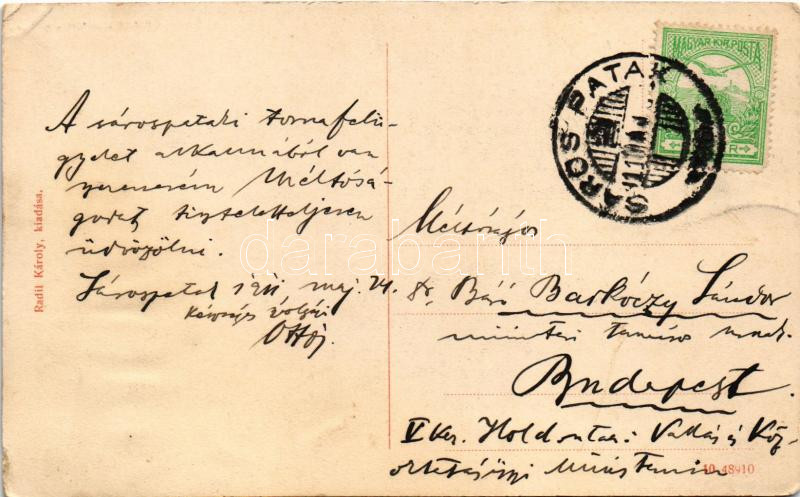 A sárospataki tornafelü-
gyelet alkalmából van
szerencsém Méltósá-
godat tiszteletteljesen
üdvözölni.
Sárospatak 1911 maj. 21.
készséges szolgája
Radil Károly, kiadása.
MAGYAR KIR. POSTA
SÁROSPATAK
Méltóságos
dr. Báró Barkóczy Sándor
miniszteri tanácsos urnak
Budapest.
V ker. Hold utca: Vallás és Köz-
oktatásügyi Ministerium
10-48910
darabanth